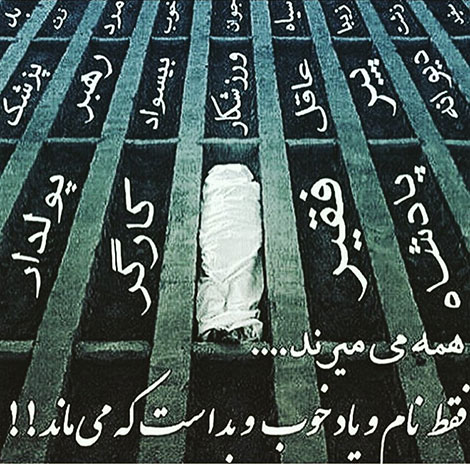 زشت زیبا سیاه جوان خوب مرد زن بد
دیوانه پیر عاقل ورزشکار بیسواد رهبر پزشک
پادشاه فقیر کارگر پولدار
همه می میرند....
فقط نام و یاد خوب و بد است که می ماند!!